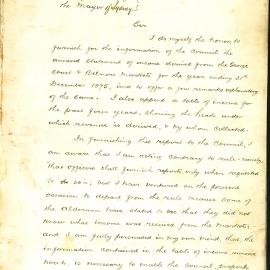 The Mayor of Sydney
Sir
I do myself the honor to
furnish for the information of the Council the
annexed statement of income derived from the George
Street & Belmore Markets for the year ending 31st
December 1875, and to offer a few remarks explanatory
of the same. I also append a table of income for
the past five years, showing the heads under
which revenue is derived, & by whom collected.
In furnishing this report to the Council, I
am aware that I am acting contrary to rule - namely,
that officers shall furnish reports only when requested
to do so, but I have ventured on the present
occasion to depart from the rule because some of
the Aldermen have stated to me that they did not
know what income was received from the Markets -
and I am fully persuaded in my own mind, that the
information contained in the table of income annexed
hereto, is necessary to enable the Council properly